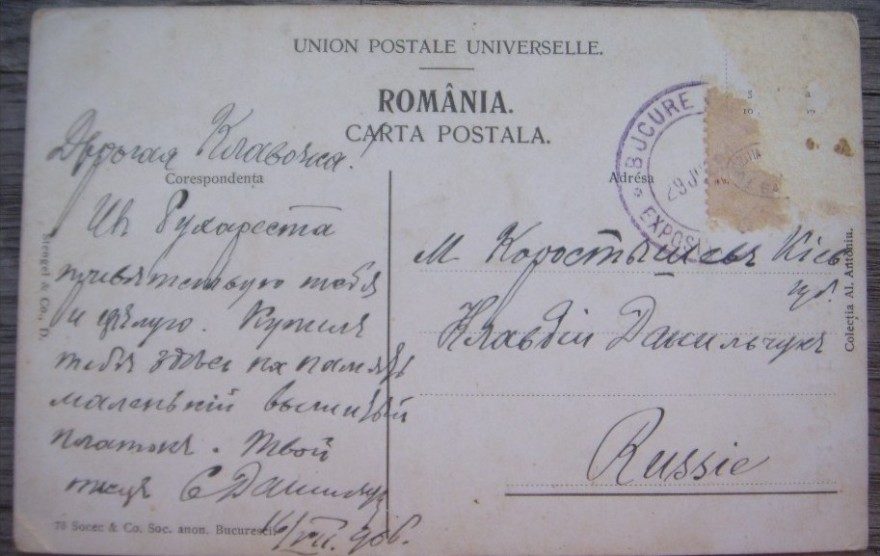 UNION POSTALE UNIVERSELLE.
ROMÂNIA.
CARTA POSTALA.
Corespondența
Adrésa
BUCURE
29 JU
EXPOSI
Дорогая Клавочка!
Изъ Бухареста
привѣтствую тебя
и цѣлую. Купилъ
тебѣ здѣсь на память
маленькій вышитый
платокъ. Твой
С Данильчук
16/VII. 906.
М Коростышевъ Кіев
губ.
Клавдіи Данильчукъ
Russie
Stengel & Co., D.
Colecția Al. Antoniu.
78 Socec & Co. Soc. anon. Bucuresci